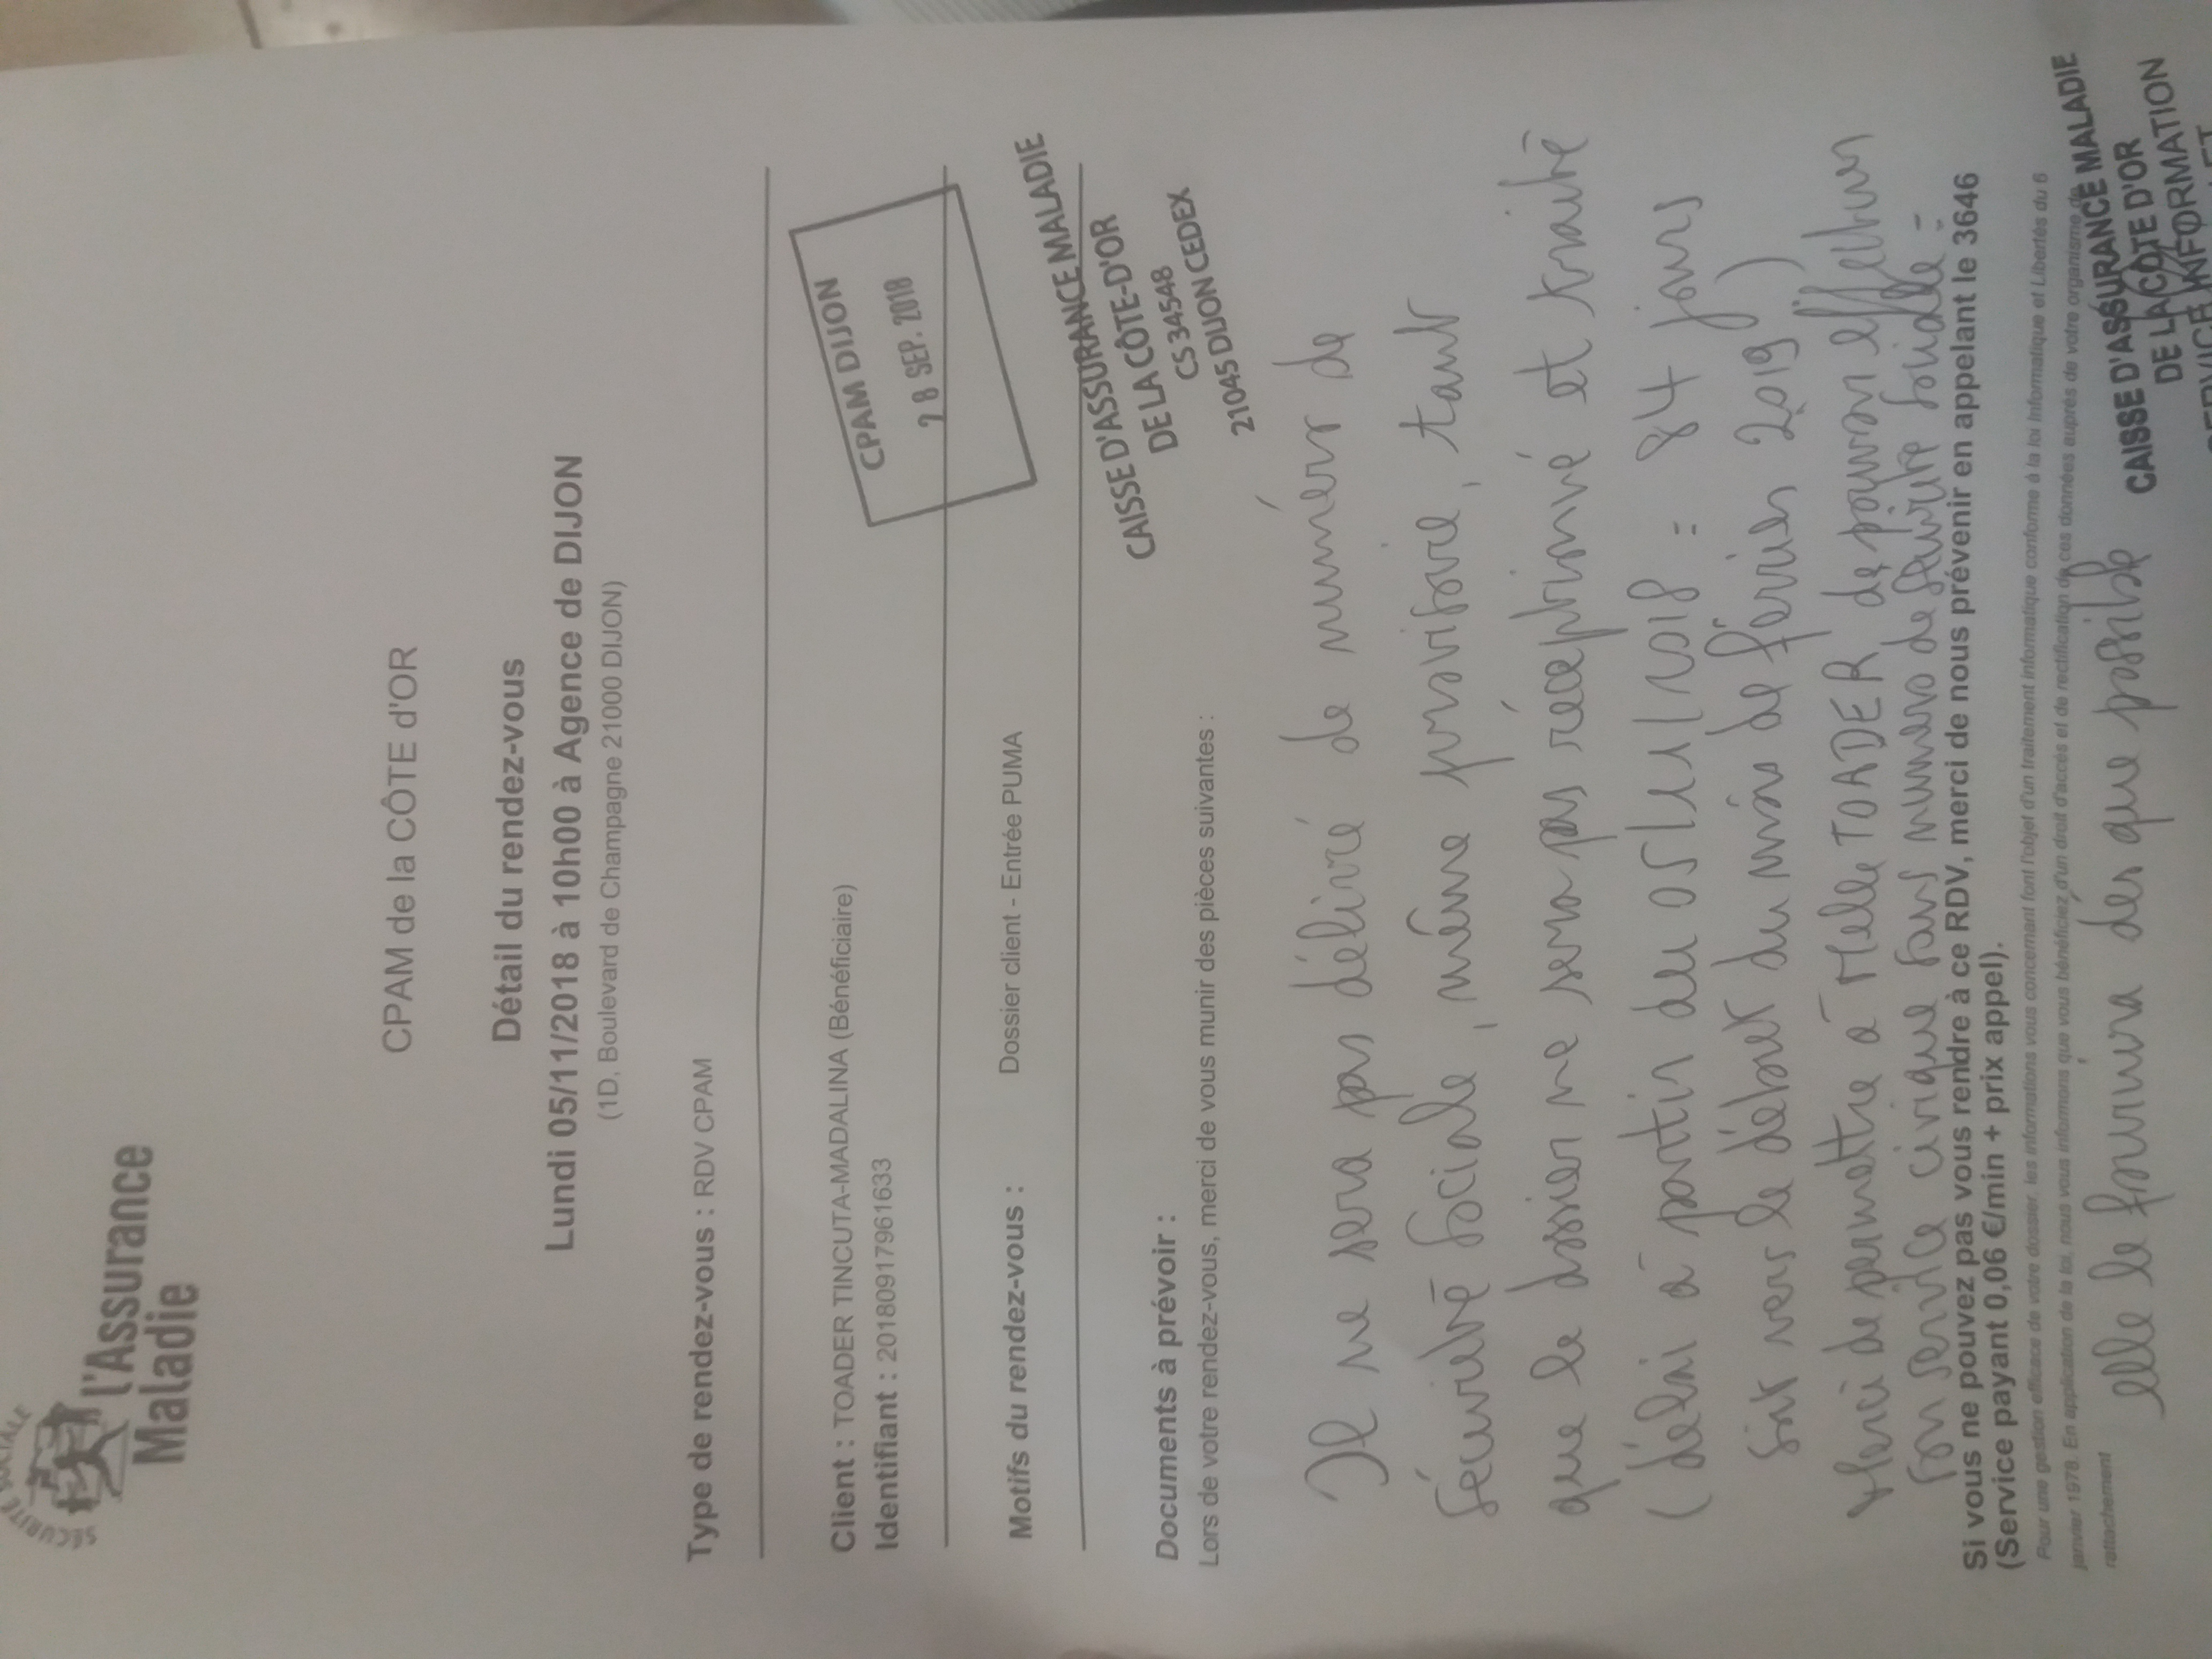 SÉCURITÉ SOCIALE
l'Assurance
Maladie
CPAM de la CÔTE d'OR
Détail du rendez-vous
Lundi 05/11/2018 à 10h00 à Agence de DIJON
(1D, Boulevard de Champagne 21000 DIJON)
Type de rendez-vous : RDV CPAM
Client : TOADER TINCUTA-MADALINA (Bénéficiaire)
Identifiant : 20180917961633
CPAM DIJON
28 SEP. 2018
Motifs du rendez-vous : Dossier client - Entrée PUMA
CAISSE D'ASSURANCE MALADIE
DE LA CÔTE-D'OR
CS 34548
21045 DIJON CEDEX
Documents à prévoir :
Lors de votre rendez-vous, merci de vous munir des pièces suivantes :
Il ne sera pas délivré de numéro de
Sécurité Sociale, même provisoire, tant
que le dossier ne sera pas réceptionné et traité
(délai à partir du 05/11/2018 = 84 jours
soit vers le début du mois de février 2019.)
Merci de permettre à Melle TOADER, de pouvoir effectuer
son service civique sans numero de sécurité sociale =
Si vous ne pouvez pas vous rendre à ce RDV, merci de nous prévenir en appelant le 3646
(Service payant 0,06 €/min + prix appel).
Pour une gestion efficace de votre dossier, les informations vous concernant font l'objet d'un traitement informatique conforme à la loi Informatique et Libertés du 6
janvier 1978. En application de la loi, nous vous informons que vous bénéficiez d'un droit d'accés et de rectification de ces données auprés de votre organisme de
rattachement
elle le fournira dès que possible
CAISSE D'ASSURANCE MALADIE
DE LA CÔTE D'OR
SERVICE INFORMATION
ET